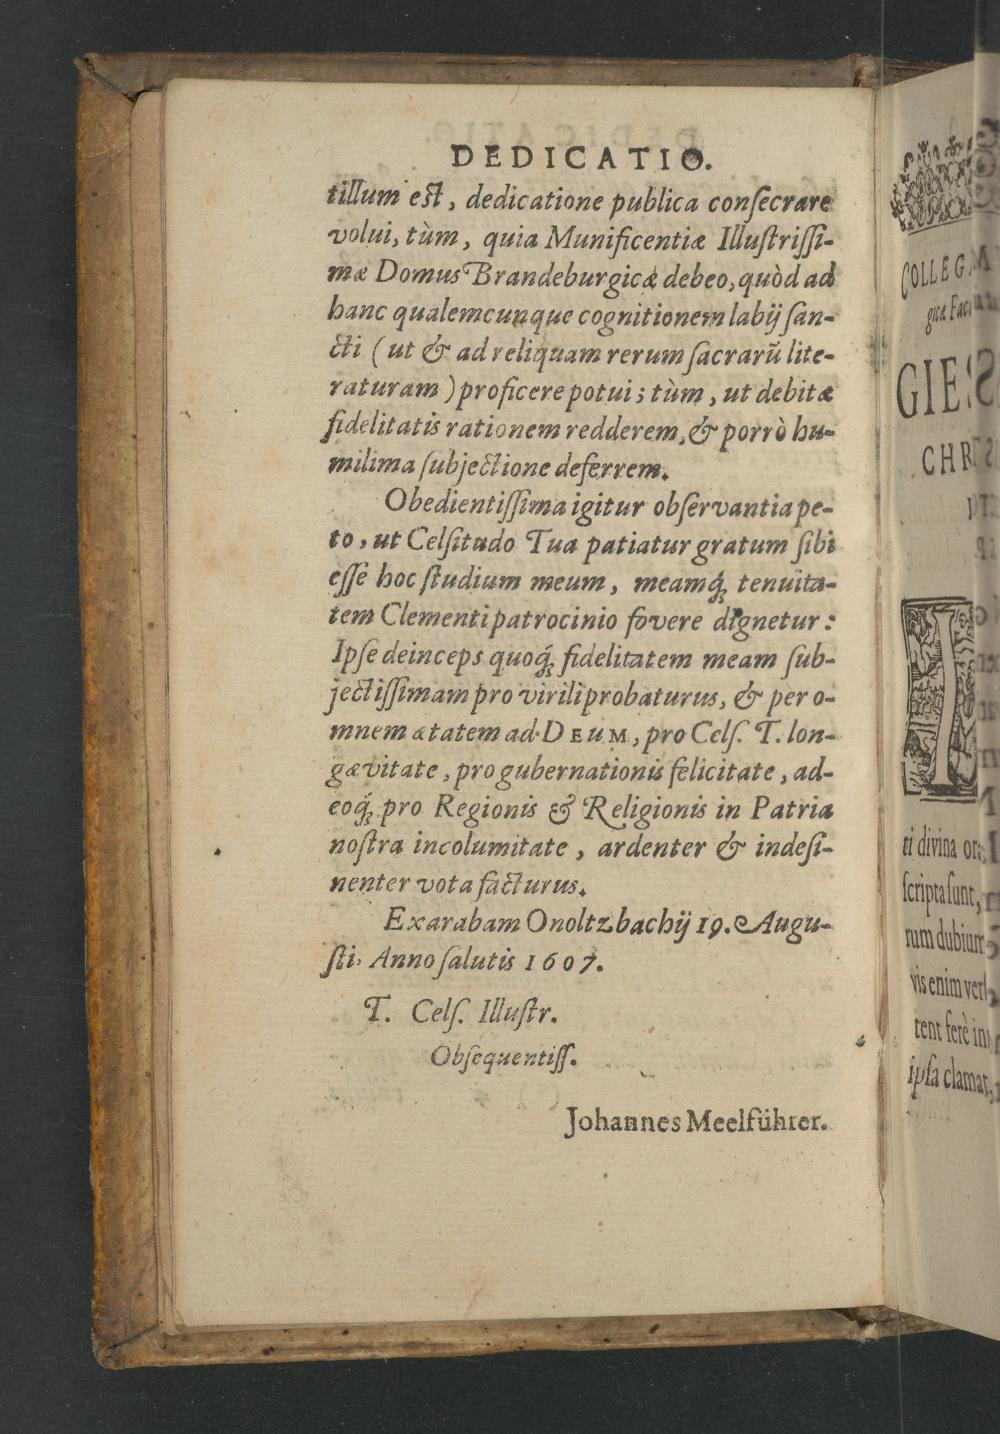 DEDICATIO.
tillum eſt, dedicatione publica conſecrare
volui, tùm, quia Munificentiæ Illuſtriſſi-
mæ Domus Brandeburgicæ debeo, quòd ad
hanc qualemcunque cognitionem labij ſan-
cti (ut & ad reliquam rerum ſacrarũ lite-
raturam) proficere potui; tùm, ut debitæ
fidelitatis rationem redderem, & porrò hu-
milima ſubjectione deferrem.
Obedientiſſima igitur obſervantia pe-
to, ut Celſitudo Tua patiatur gratum ſibi
eſſe hoc ſtudium meum, meamq́; tenuita-
tem Clementi patrocinio fovere dignetur:
Ipſe deinceps quoq́; fidelitatem meam ſub-
jectiſſimam pro virili probaturus, & per o-
mnem ætatem ad DEUM, pro Celſ. T. lon-
gævitate, pro gubernationis felicitate, ad-
eoq́; pro Regionis & Religionis in Patria
noſtra incolumitate, ardenter & indeſi-
nenter vota facturus.
Exarabam Onoltzbachij 19. Augu-
ſti, Anno ſalutis 1607.
T. Celſ. Illuſtr.
Obſequentiſſ.
Johannes Meelführer.
COLLEG
gicæ Fac
GIE
CHR
I
ti divina or
ſcripta ſunt,
rum dubium
vis enim verb
tent ferè in
ipſa clamat,